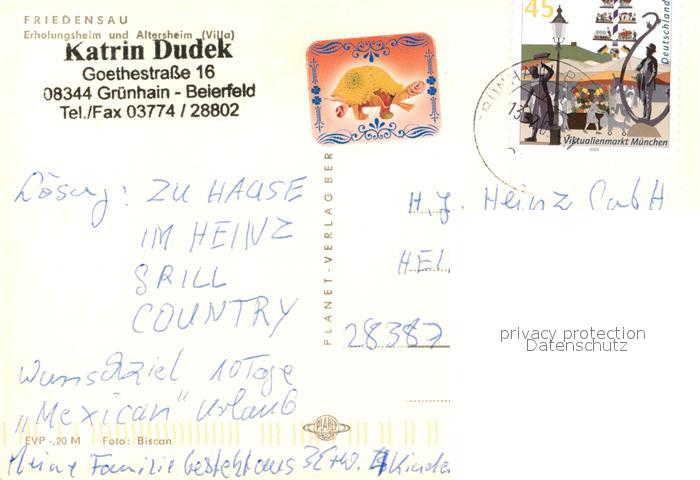 FRIEDENSAU
Erholungsheim und Altersheim (Villa)
Katrin Dudek
Goethestraße 16
08344 Grünhain - Beierfeld
Tel./Fax 03774 / 28802
45
Deutschland
Viktualienmarkt München
2003
GRÜNH
PLANET-VERLAG BER
Lösung: ZU HAUSE
IM HEINZ
GRILL
COUNTRY
Wunschziel 10 Tage
„Mexican" Urlaub
H. J. Heinz GmbH
HEL
28387
privacy protection
Datenschutz
PLANET
EVP -,20 M Foto: Biscan
Meine Familie besteht aus 3 Erw. 4 Kinder